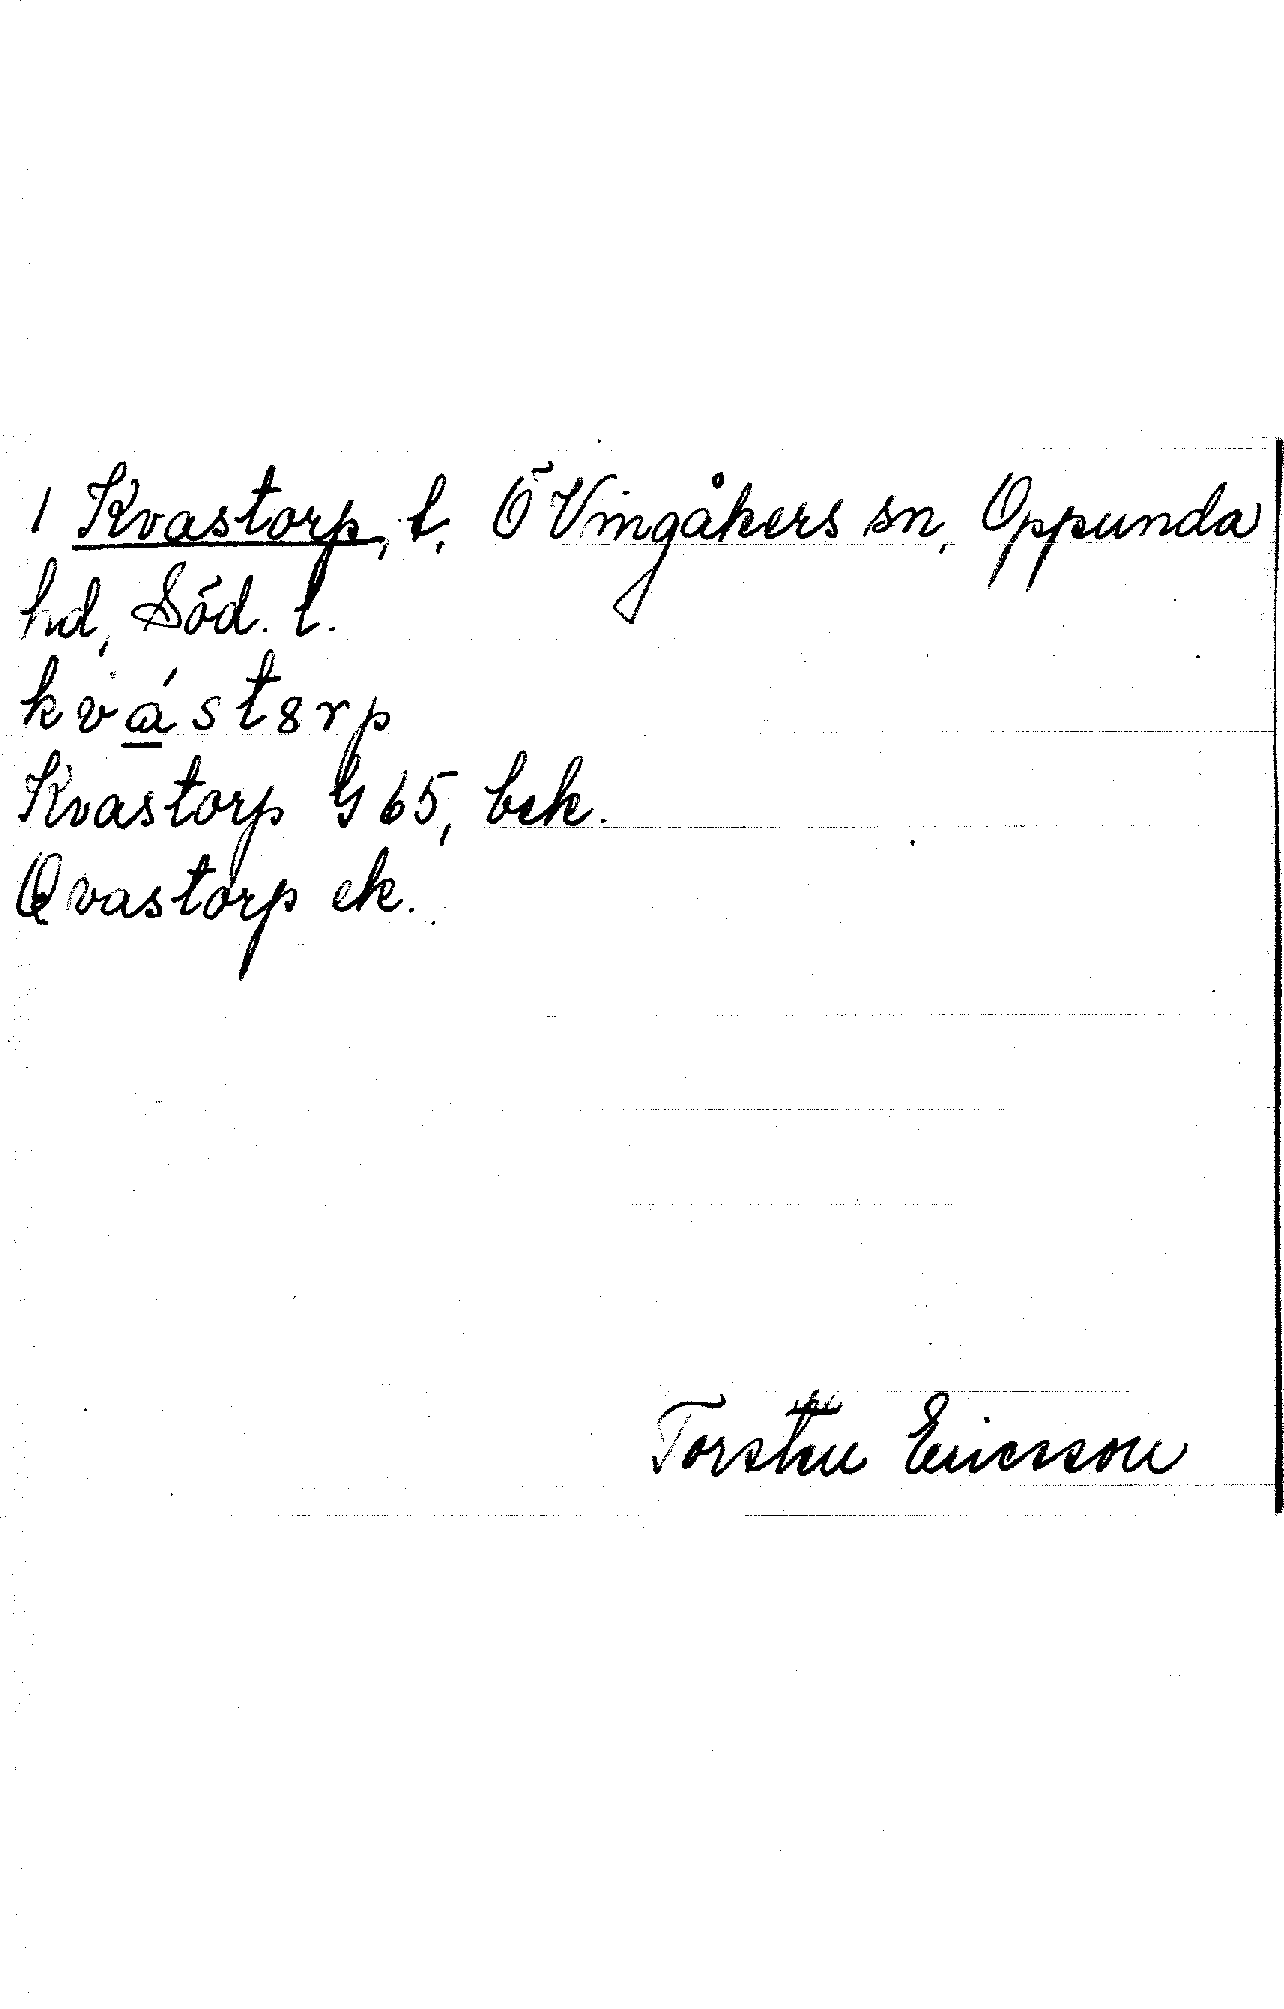 1 Kvastorp, t, Ö Vingåkers sn, Oppunda
hd, Söd. l.
kvást8rp
Kvastorp G 65, bek.
Qvastorp ek.
Torsten Ericsson